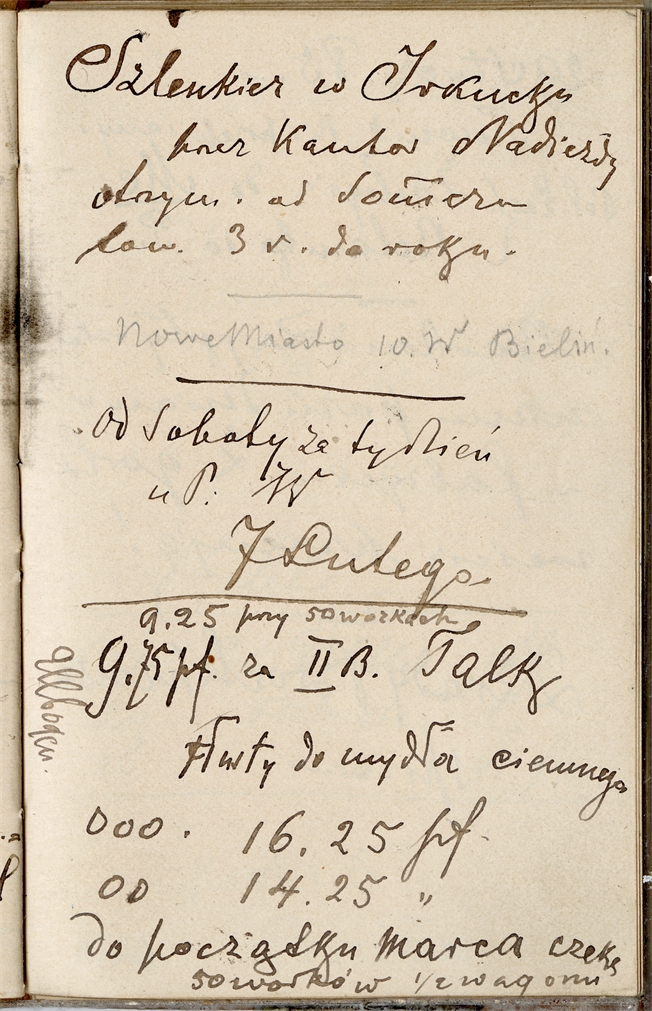 Szlenkier w Irkucku
przez Kantor Nadieżdy
otrzym. od
tow. 3 r. do roku.
Nowe Miasto 10. W Bieliń.
od Soboty za tydzień
u P. W
7 Lutego
9.25 przy 50 workach
9.75 pf. za II B. Talk
Ellbogen.
tłusty do mydła ciemnego
000. 16.25 pf.
00 14.25 "
do początku marca czeka
50 worków 1/2 wagonu